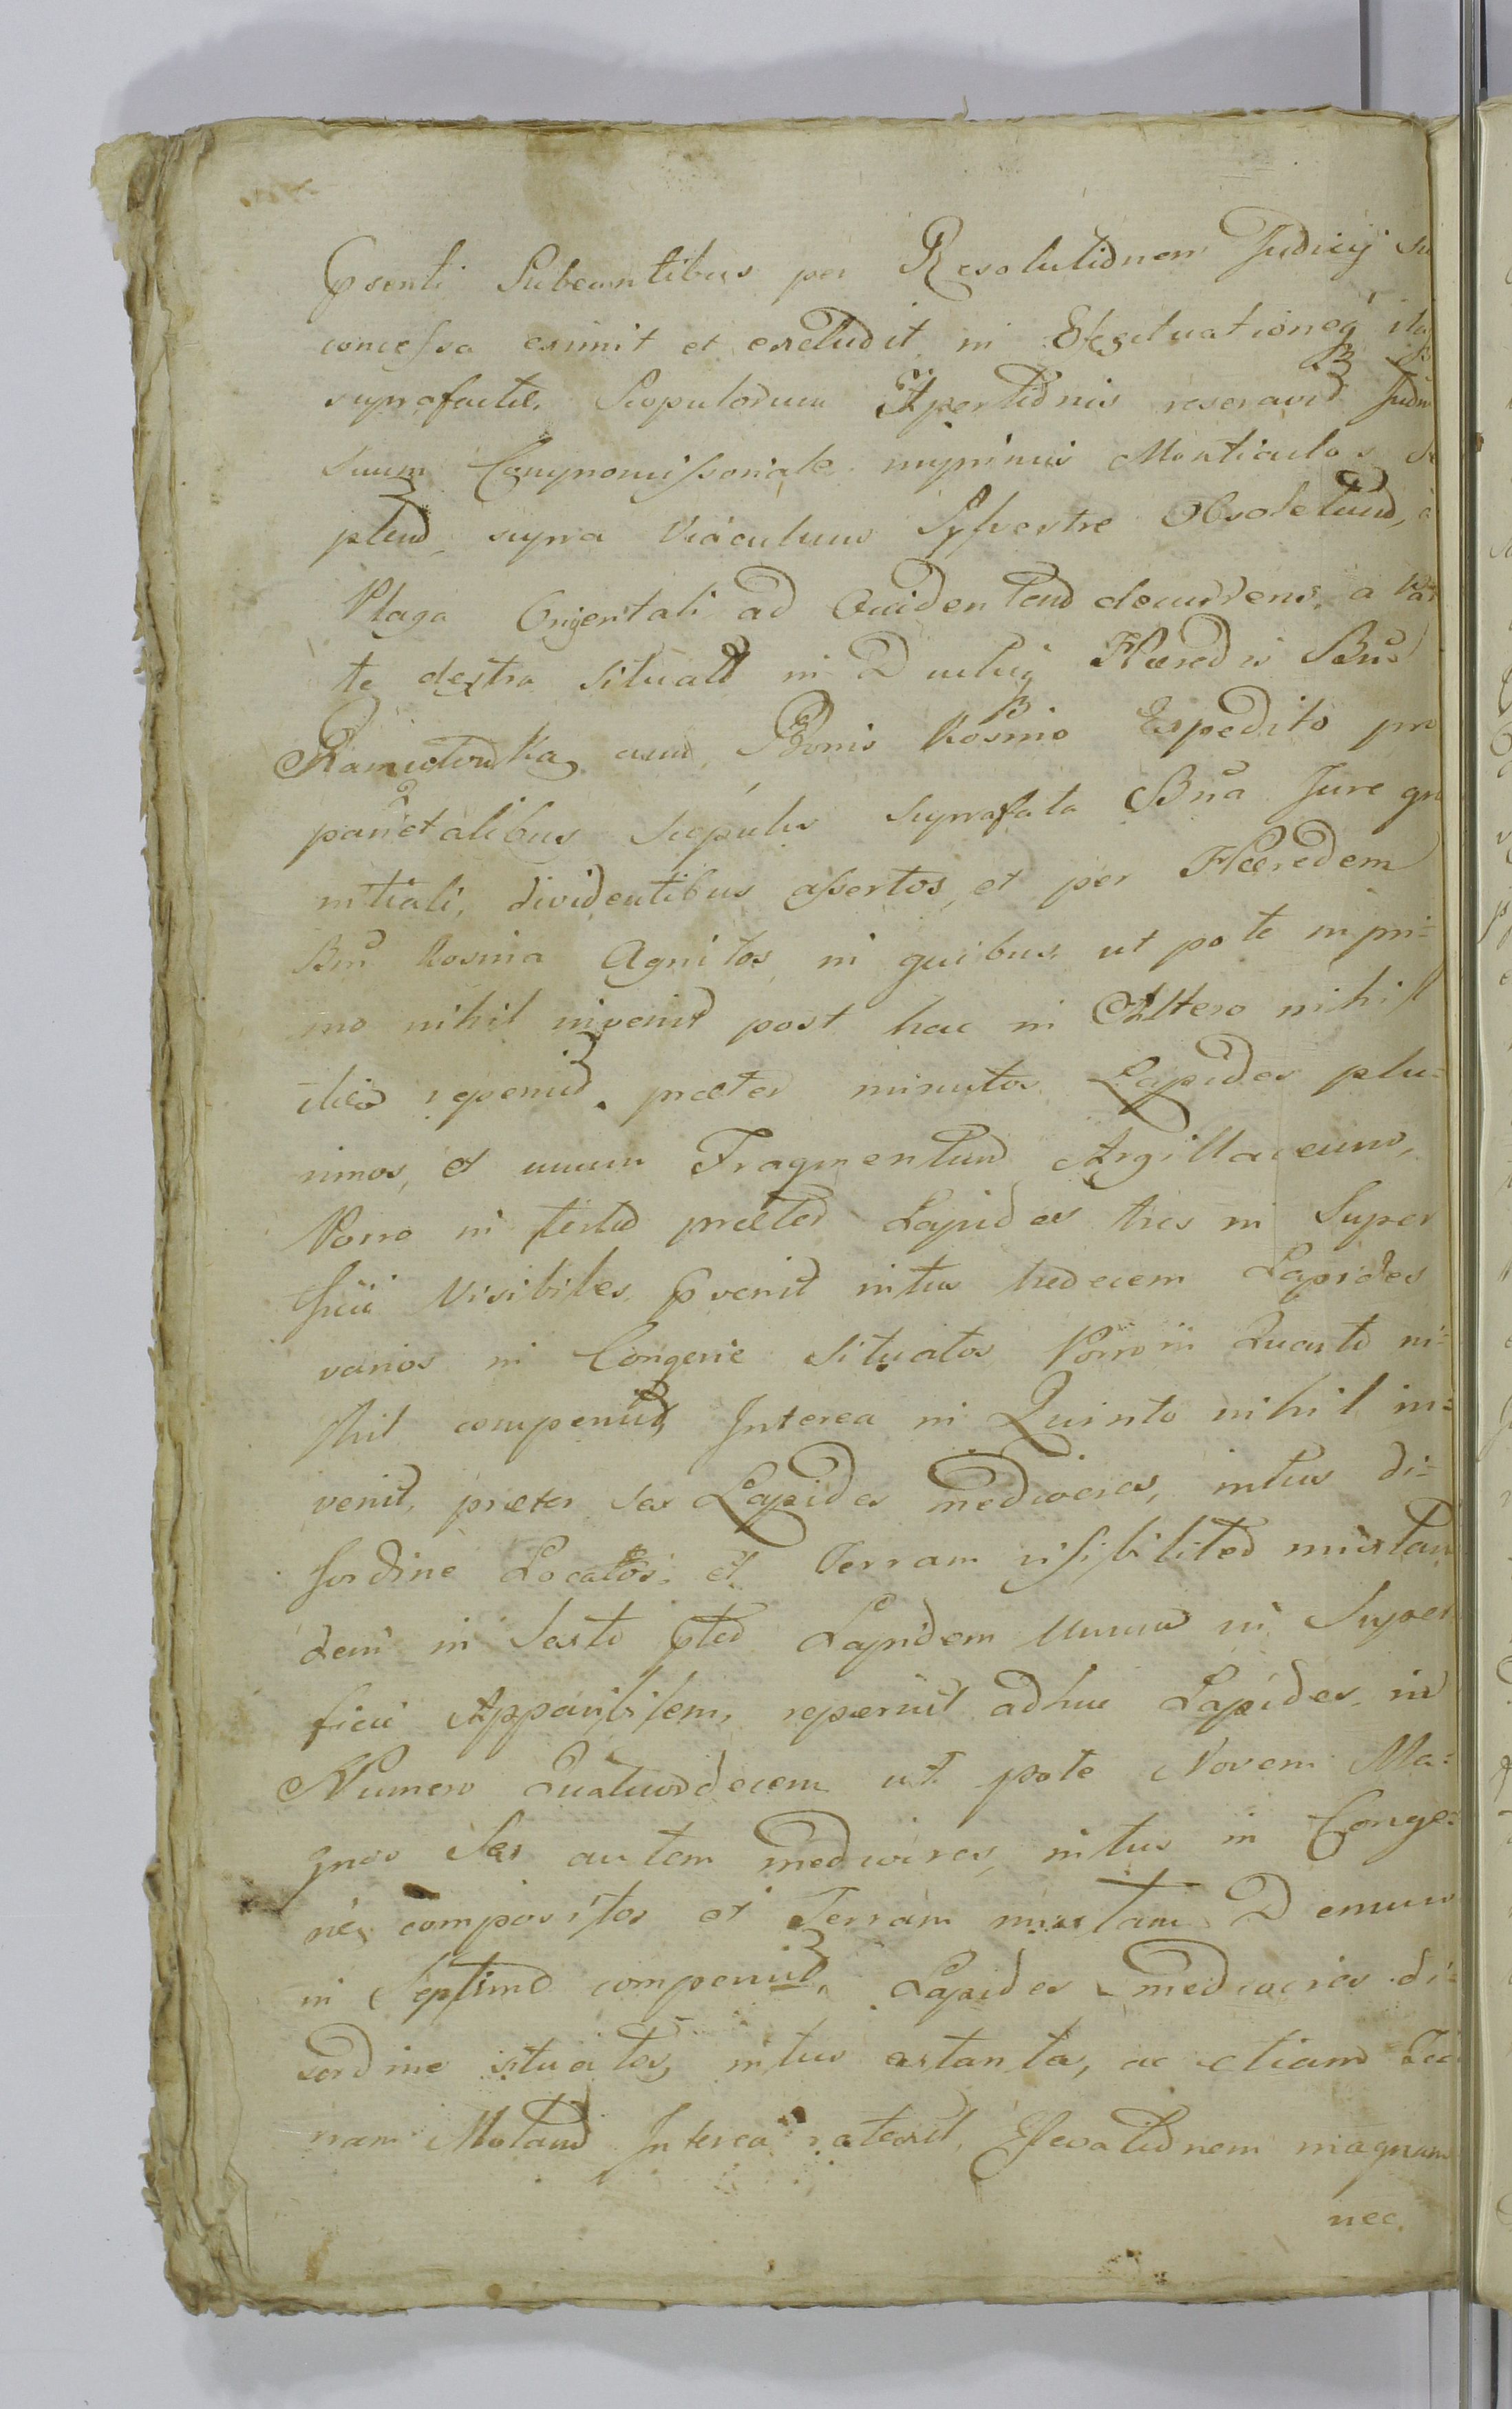 Psenti Subeuntibus per Resolutionem Judicij
concessa eximit et excludit in Exequutionem
suprafactae Scopulorum Apertionis reseravit
suum Compromissoriale inprimis Monticulos
ptem supra Viaculum Sylvestre Obsoletum, à
Plaga Orijentali ad Occidentem decurrens, a Par
te dextra situatos in Ductu Haeredis Bno
Ramiotowka cum Bonis Kosmo Expedito pro
parietalibus scopulis suprafata Bna Jure
nitiali, dividentibus assertos, et per Haeredem
Bno Kosmia Agnitos in quibus ut pote in pri=
mo nihil invenit post hac in Altero nihil
aliud reperuit praeter minutos Lapides plu=
rimos, et unum Fragmentum Argillaceum,
Porro in tertio praeter Lapides tres in Super
ficie Visibiles pvenit intus tredecem Lapides
varios in Congerie situatos Porro in Quarto ni=
hil comperuit Interea in Quinto nihil in=
venit, praeter sex Lapides mediocres, intus di=
sordine Locatos, et Terram visibiliter mixtam
dein in Sexto pter Lapidem Unum in Super
ficie Apparibilem, reperuit adhuc Lapides in
Numero Quatuordecem ut pote Novem Ma=
gnos Sex autem mediocres, intus in Conge=
rie compositos et Terram mixtam Demum
in Septimo comperuit, Lapides mediocres di=
sordine situatos, intus extantes, ac etiam Ter
ram Motam Interea ratexit, Elevationem magnam
nec